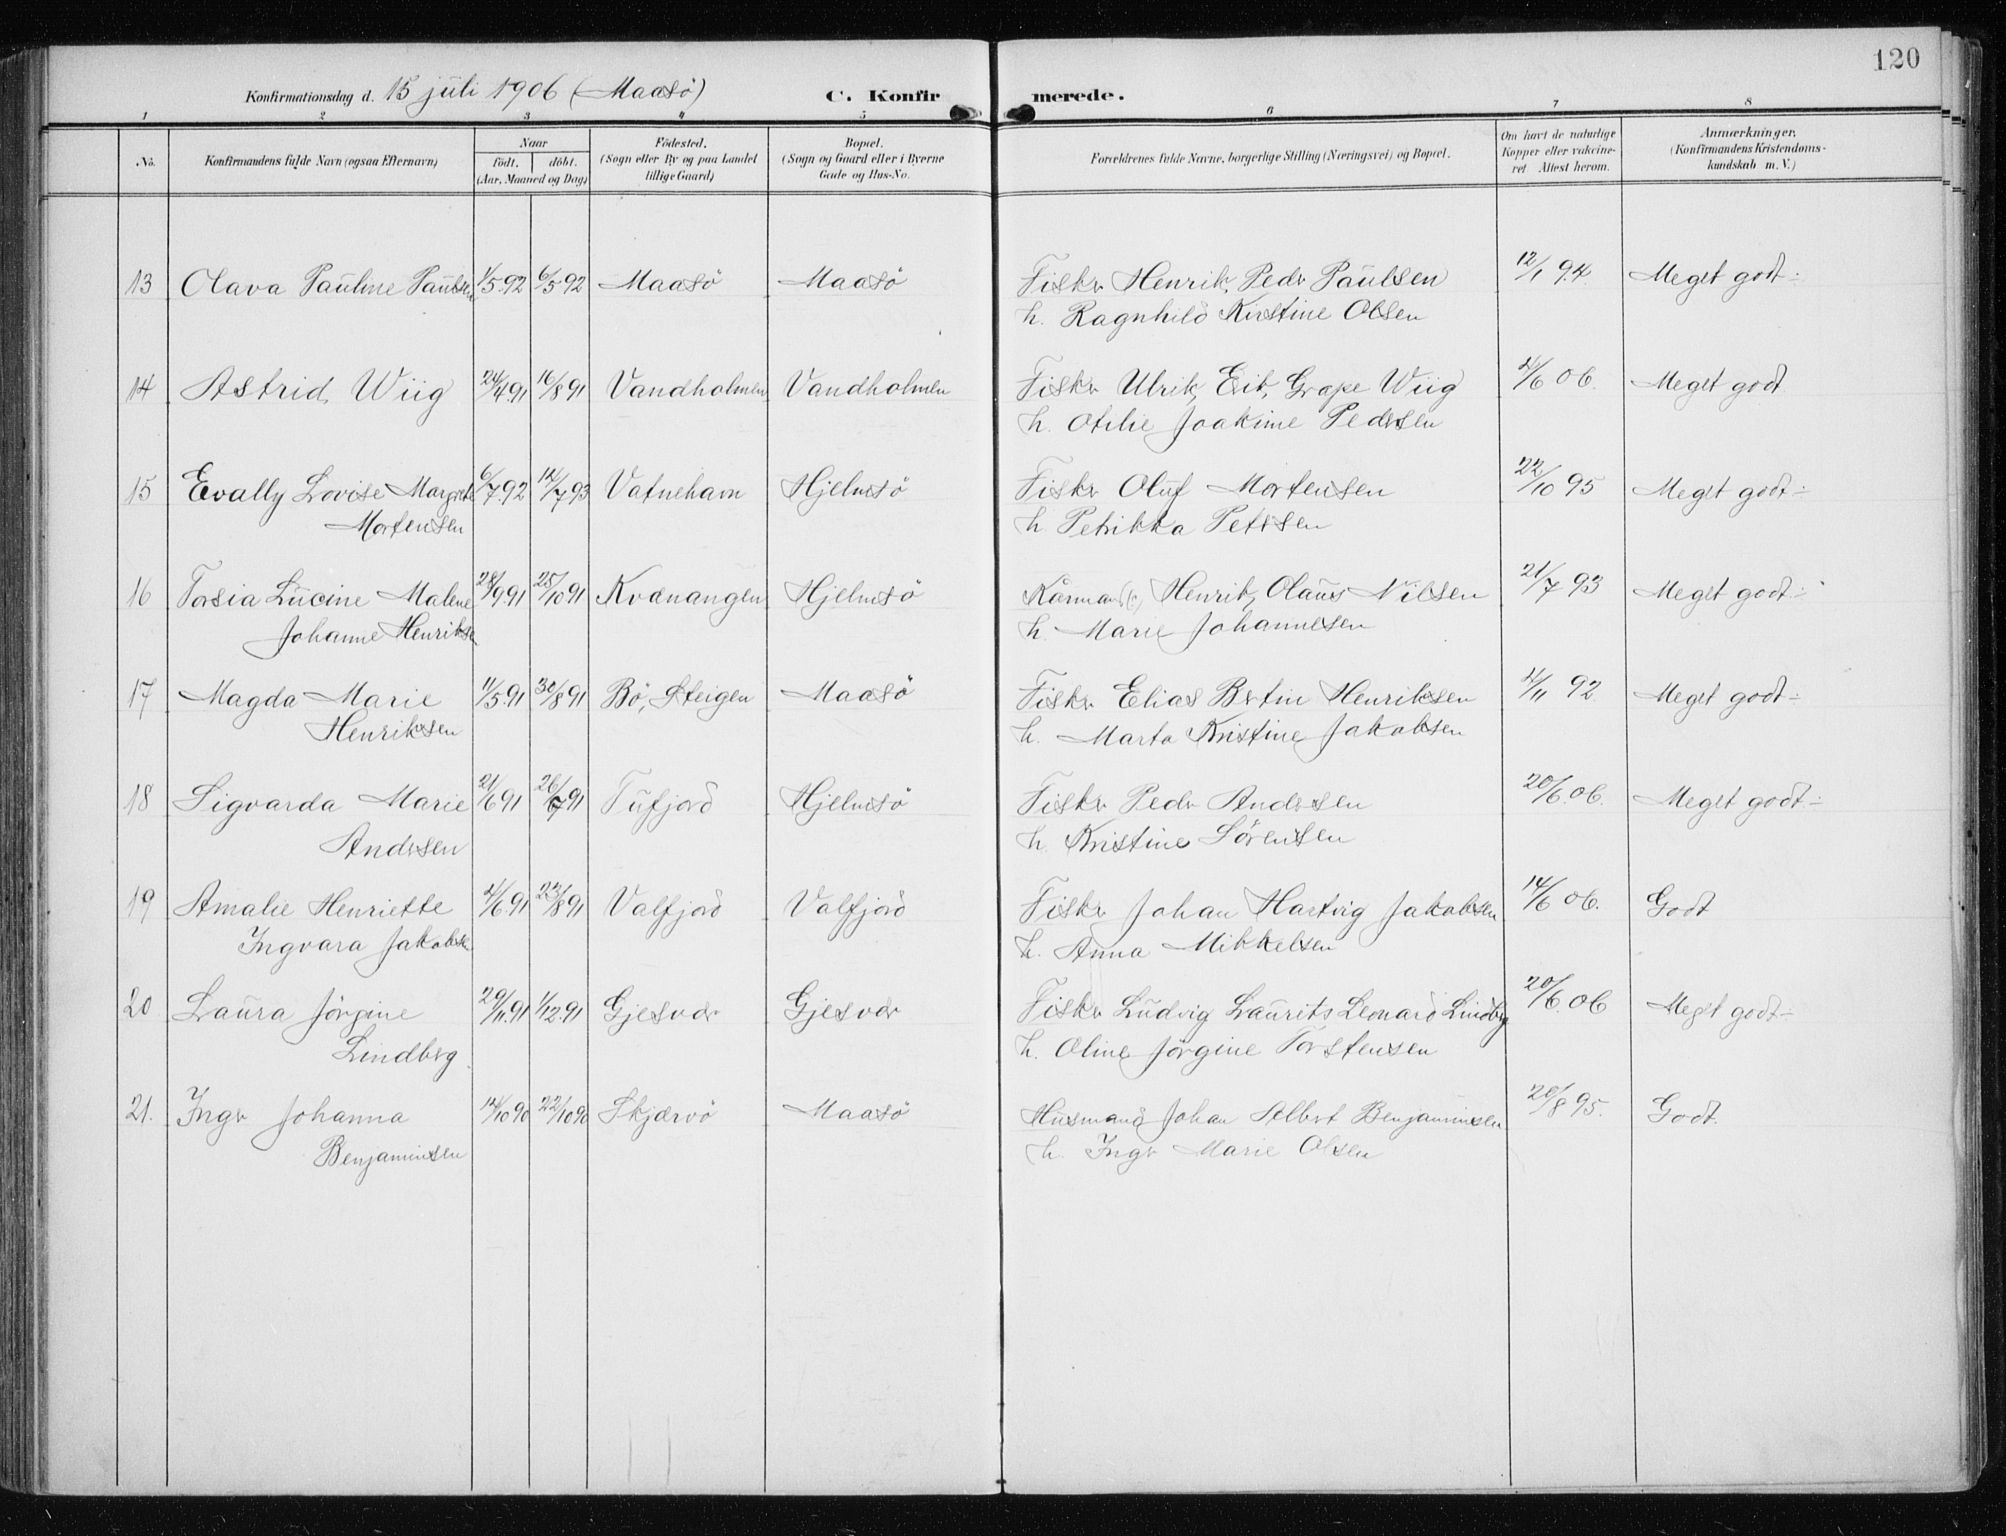 120
Konfirmationsdag d. 15 juli 1906 (Maasö) C. Konfirmerede.
1 2 3 4 5 6 7 8
No. Konfirmandens fulde Navn (ogsaa Efternavn) Naar födt. döbt. (Aar, Maaned og Dag) Födested. (Sogn eller By og paa Landet tillige Gaard) Bopæl. (Sogn og Gaard eller i Byerne Gade og Hus-No. Forældrenes fulde Navne, borgerlige Stilling (Næringsvei) og Bopæl. Om havt de naturlige Kopper eller vakcineret Attest herom. Anmærkninger. (Konfirmandens Kristendomskundskab m. V.)
13 Olava Pauline Paulsen 1/5.92 6/5 92 Maasö Maasö Fisker Henrik Peder Paulsen 12/1 94 Meget godt
h. Ragnhild Kirstine Olsen
14 Astrid Wiig 24/4 91 16/8 91 Vandholmen Vandholmen Fisker Ulrik Grape Wiig /6 06. Meget godt
h. Otilie Joakime Pedersen
15 Evally Lovise Margrete 6/7 92 /7 93 Vatnehavn Hjelmsö Fisker Oluf Mortensen 22/10 95 Meget godt
Mortensen h Petrikka Petersen
16 Torsia Lucine Malene 28/9.91 25/10 91 Kvænangen Hjelmsö Henrik Olaus Nilsen 21/7 93 Meget godt
Johanne Henriksen h. Marie Johannesen
17 Magda Marie 11/5.91 30/8 91 Bö, Steigen Maasö Fisker Elias Bertin Henriksen /11 92 Meget godt
Henriksen h. Marta Kristine Jakobsen
18 Sigvarda Marie 21/6 91 26/7 91 Tufjord Hjelmsö Fisker Peder Andersen 20/6.06. Meget godt
Andersen h. Kristine Sörensen
19 Amalie Henriette /6.91 23/8 91 Valfjord Valfjord Fisker Johan Hartvig Jakobsen 14/6 06. Godt
Ingvara Jakobsen h. Anna Mikkelsen
20 Laura Jörgine 29/11.91 1/12.91 Gjesvær Gjesvær Fisker Ludvig Laurits Leonard Lindberg 20/6.06 Meget godt
Lindberg. h. Oline Jörgine Torstensen
21. Inger Johanna /10 90 22/10 90 Skjærvö Maasö Husmand Johan Albert Benjaminsen 20/8 95. Godt.
Benjaminsen h. Inger Marie Olsen